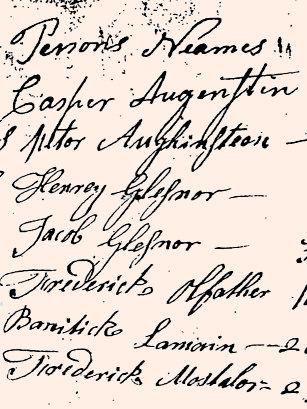 Persons Neames
Casper Augenstin
Petor Aughinsteon —
Henrey Glesnor —
Jacob Glesnor —
Frederick Olfather
Banilick Lamain — 2
Frederick Mostalor = 2